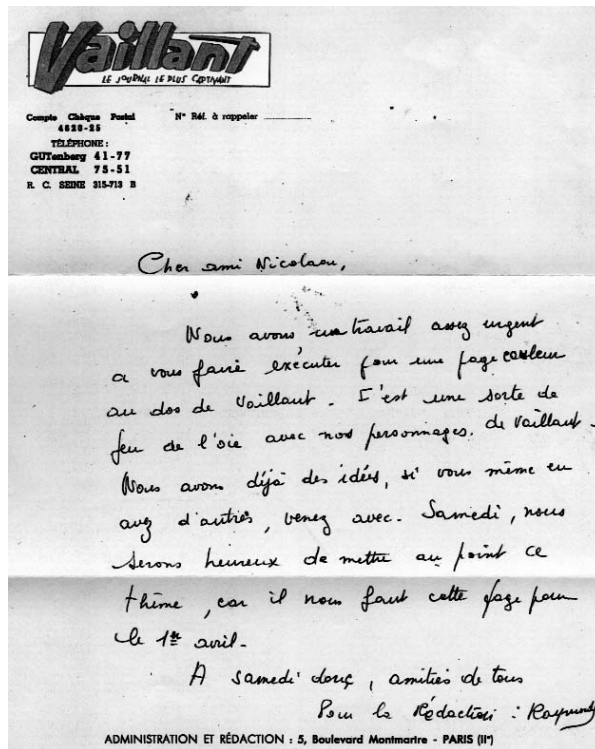 Vaillant
LE JOURNAL LE PLUS CAPTIVANT
Compte Chèque Postal
4620-25
N° Réf. à rappeler
TÉLÉPHONE :
GUTenberg 41-77
CENTRAL 75-51
R. C. SEINE 315-713 B
Cher ami Nicolaou,
Nous avons un travail assez urgent
a vous faire exécuter pour une page couleur
au dos de Vaillant. C'est une sorte de
jeu de l'oie avec nos personnages. de Vaillant.
Nous avons déjà des idées, si vous même en
avez d'autres, venez avec. Samedi, nous
serons heureux de mettre au point ce
thème, car il nous faut cette page pour
le 1er avril.
A samedi donc, amitiés de tous
Pour la Rédaction : Raymond
ADMINISTRATION ET RÉDACTION : 5, Boulevard Montmartre - PARIS (IIe)